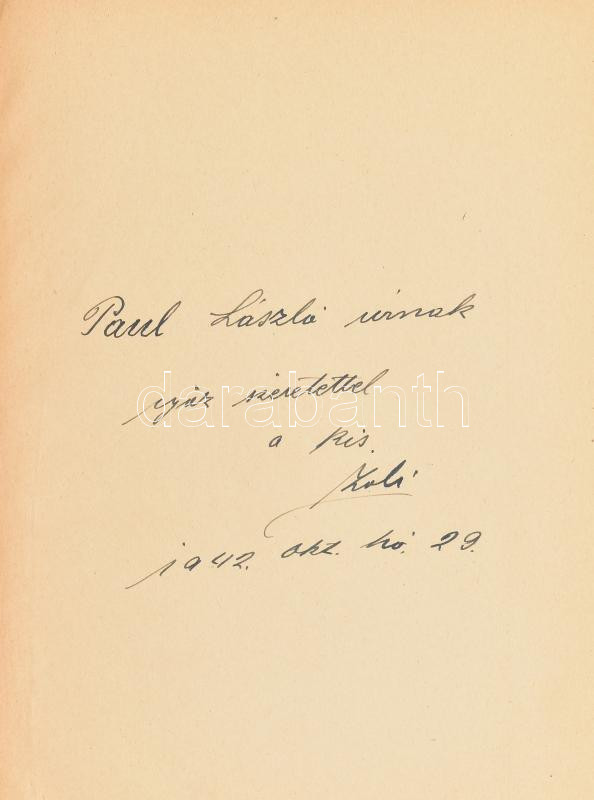 Paul László úrnak
igaz szeretettel
darabanth
a kis.
Zoli
1942. okt. hó. 29.